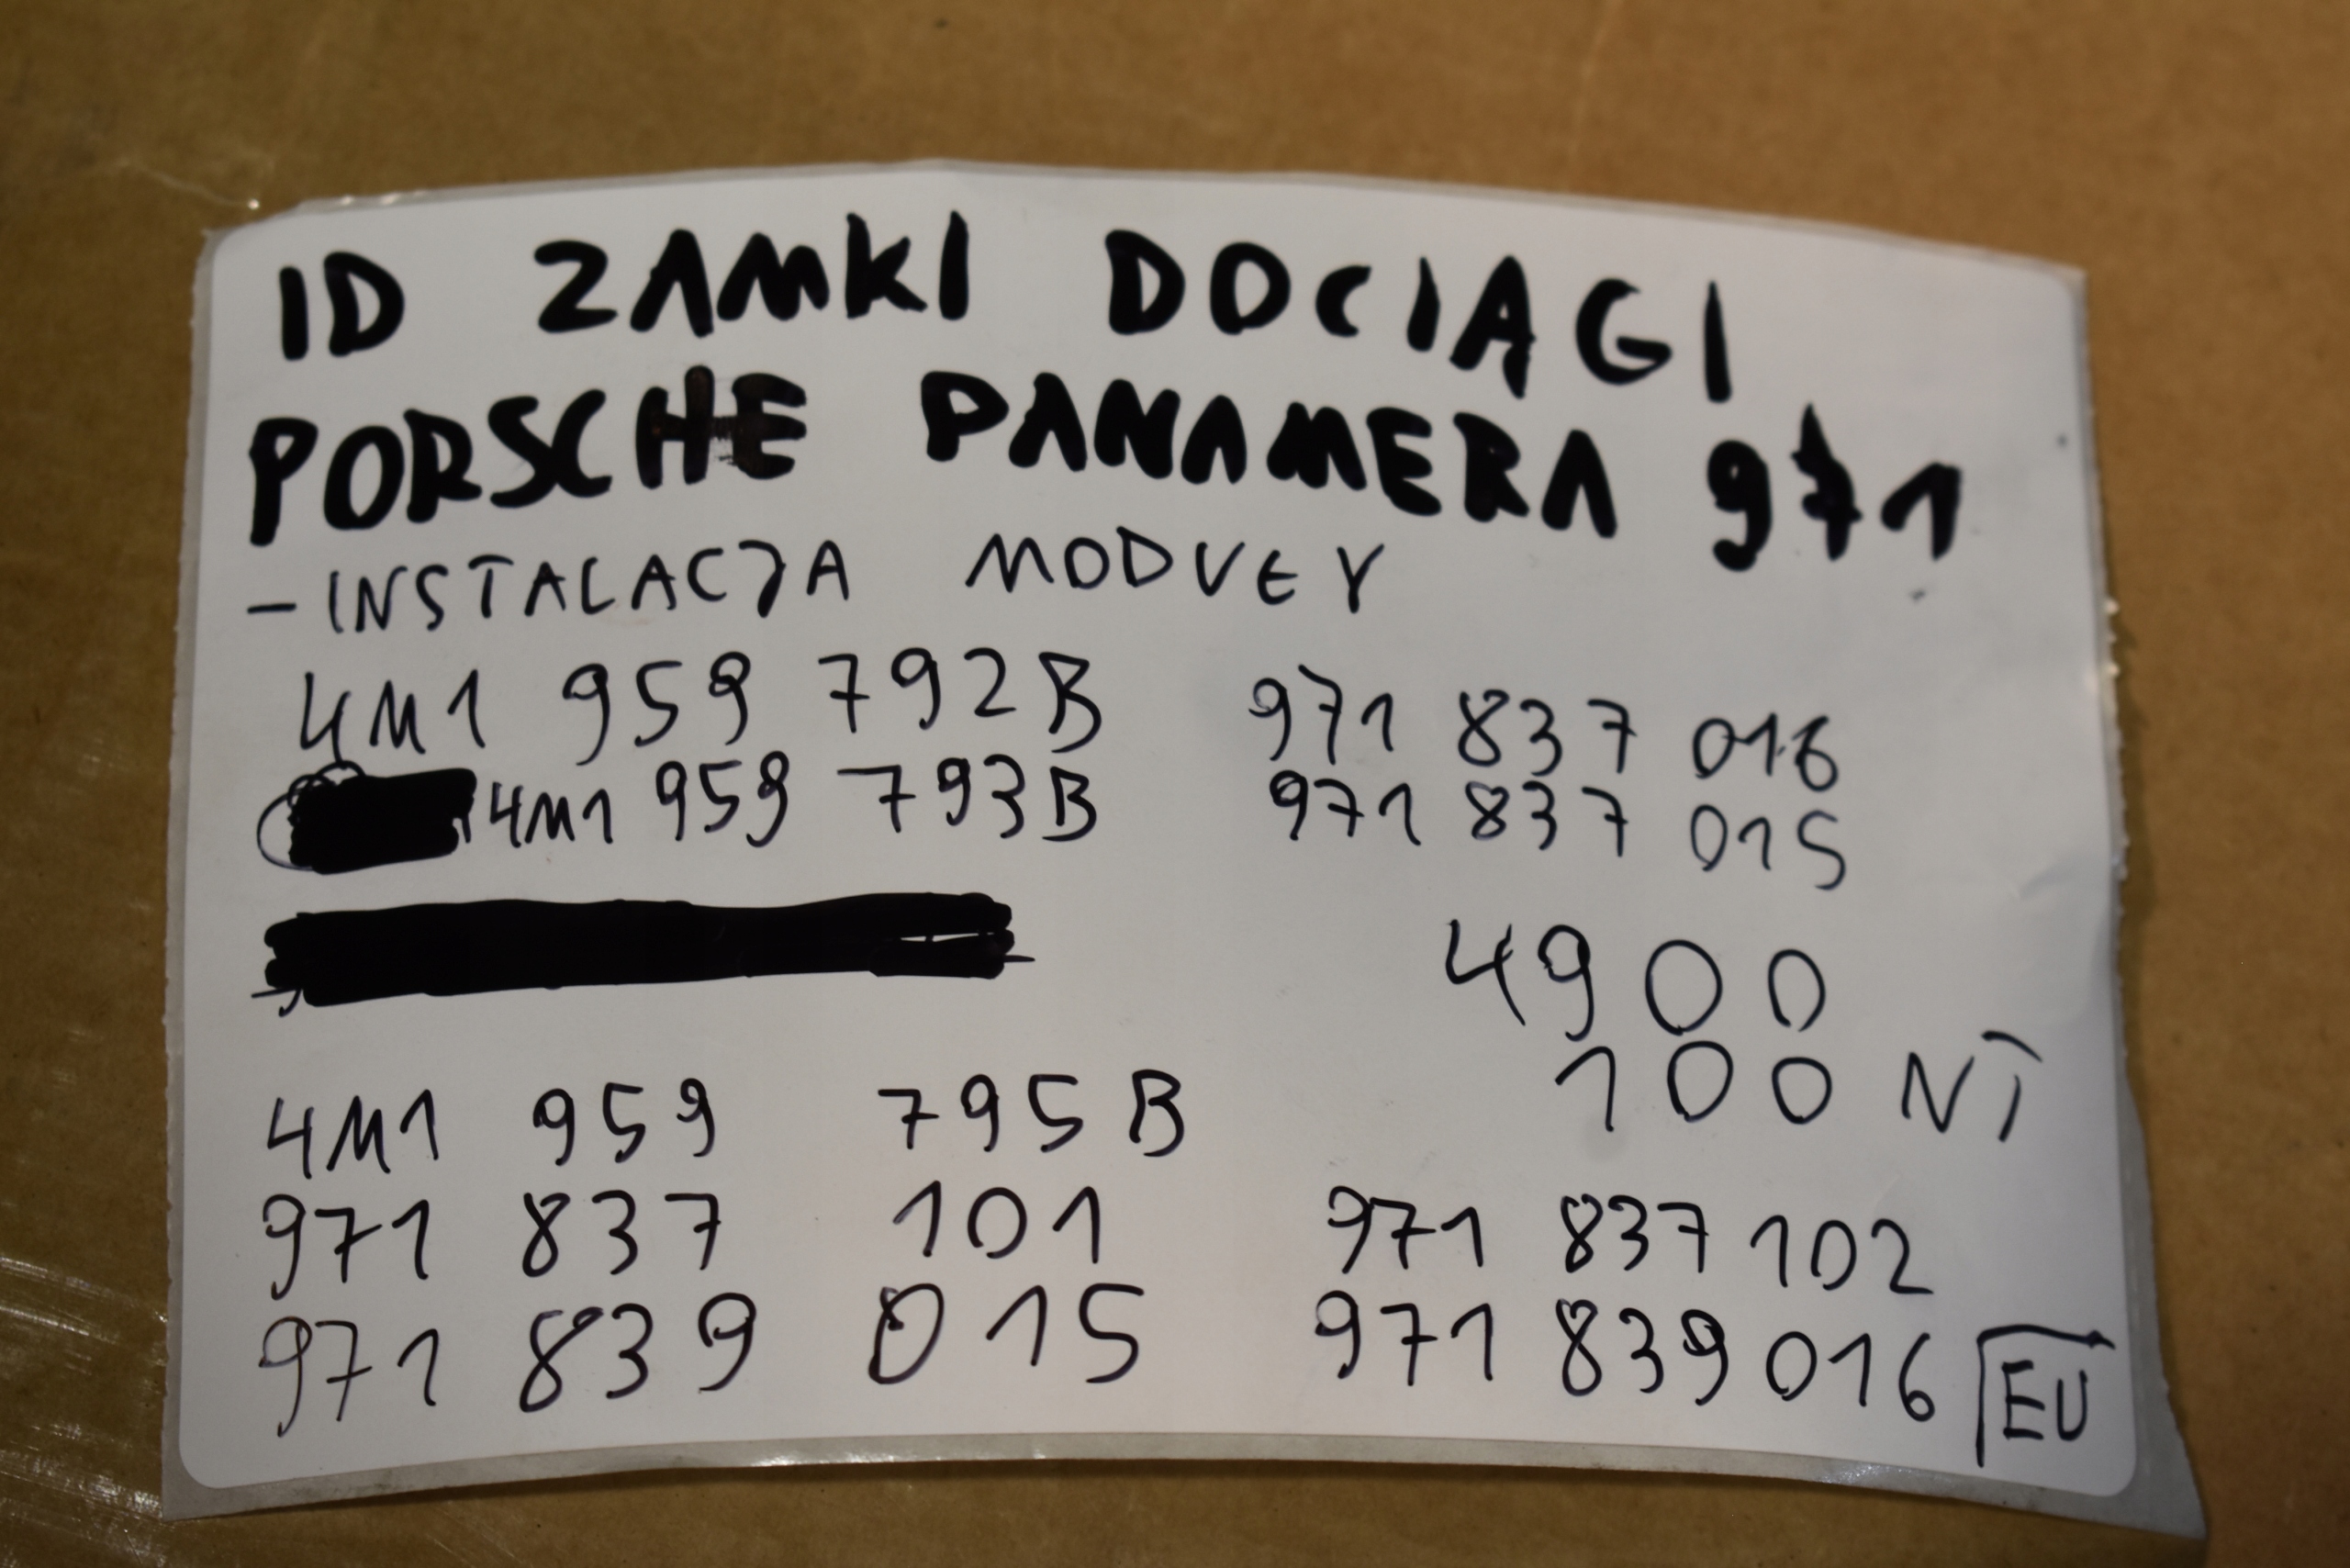 ID ZAMKI DOCIAGI
PORSCHE PANAMERA 971
- INSTALACJA MODUŁY
4M1 959 792B 971 837 016
4M1 959 793B 971 837 015
4900
100 NT
4M1 959 795B
971 837 101 971 837 102
971 839 015 971 839 016 EU